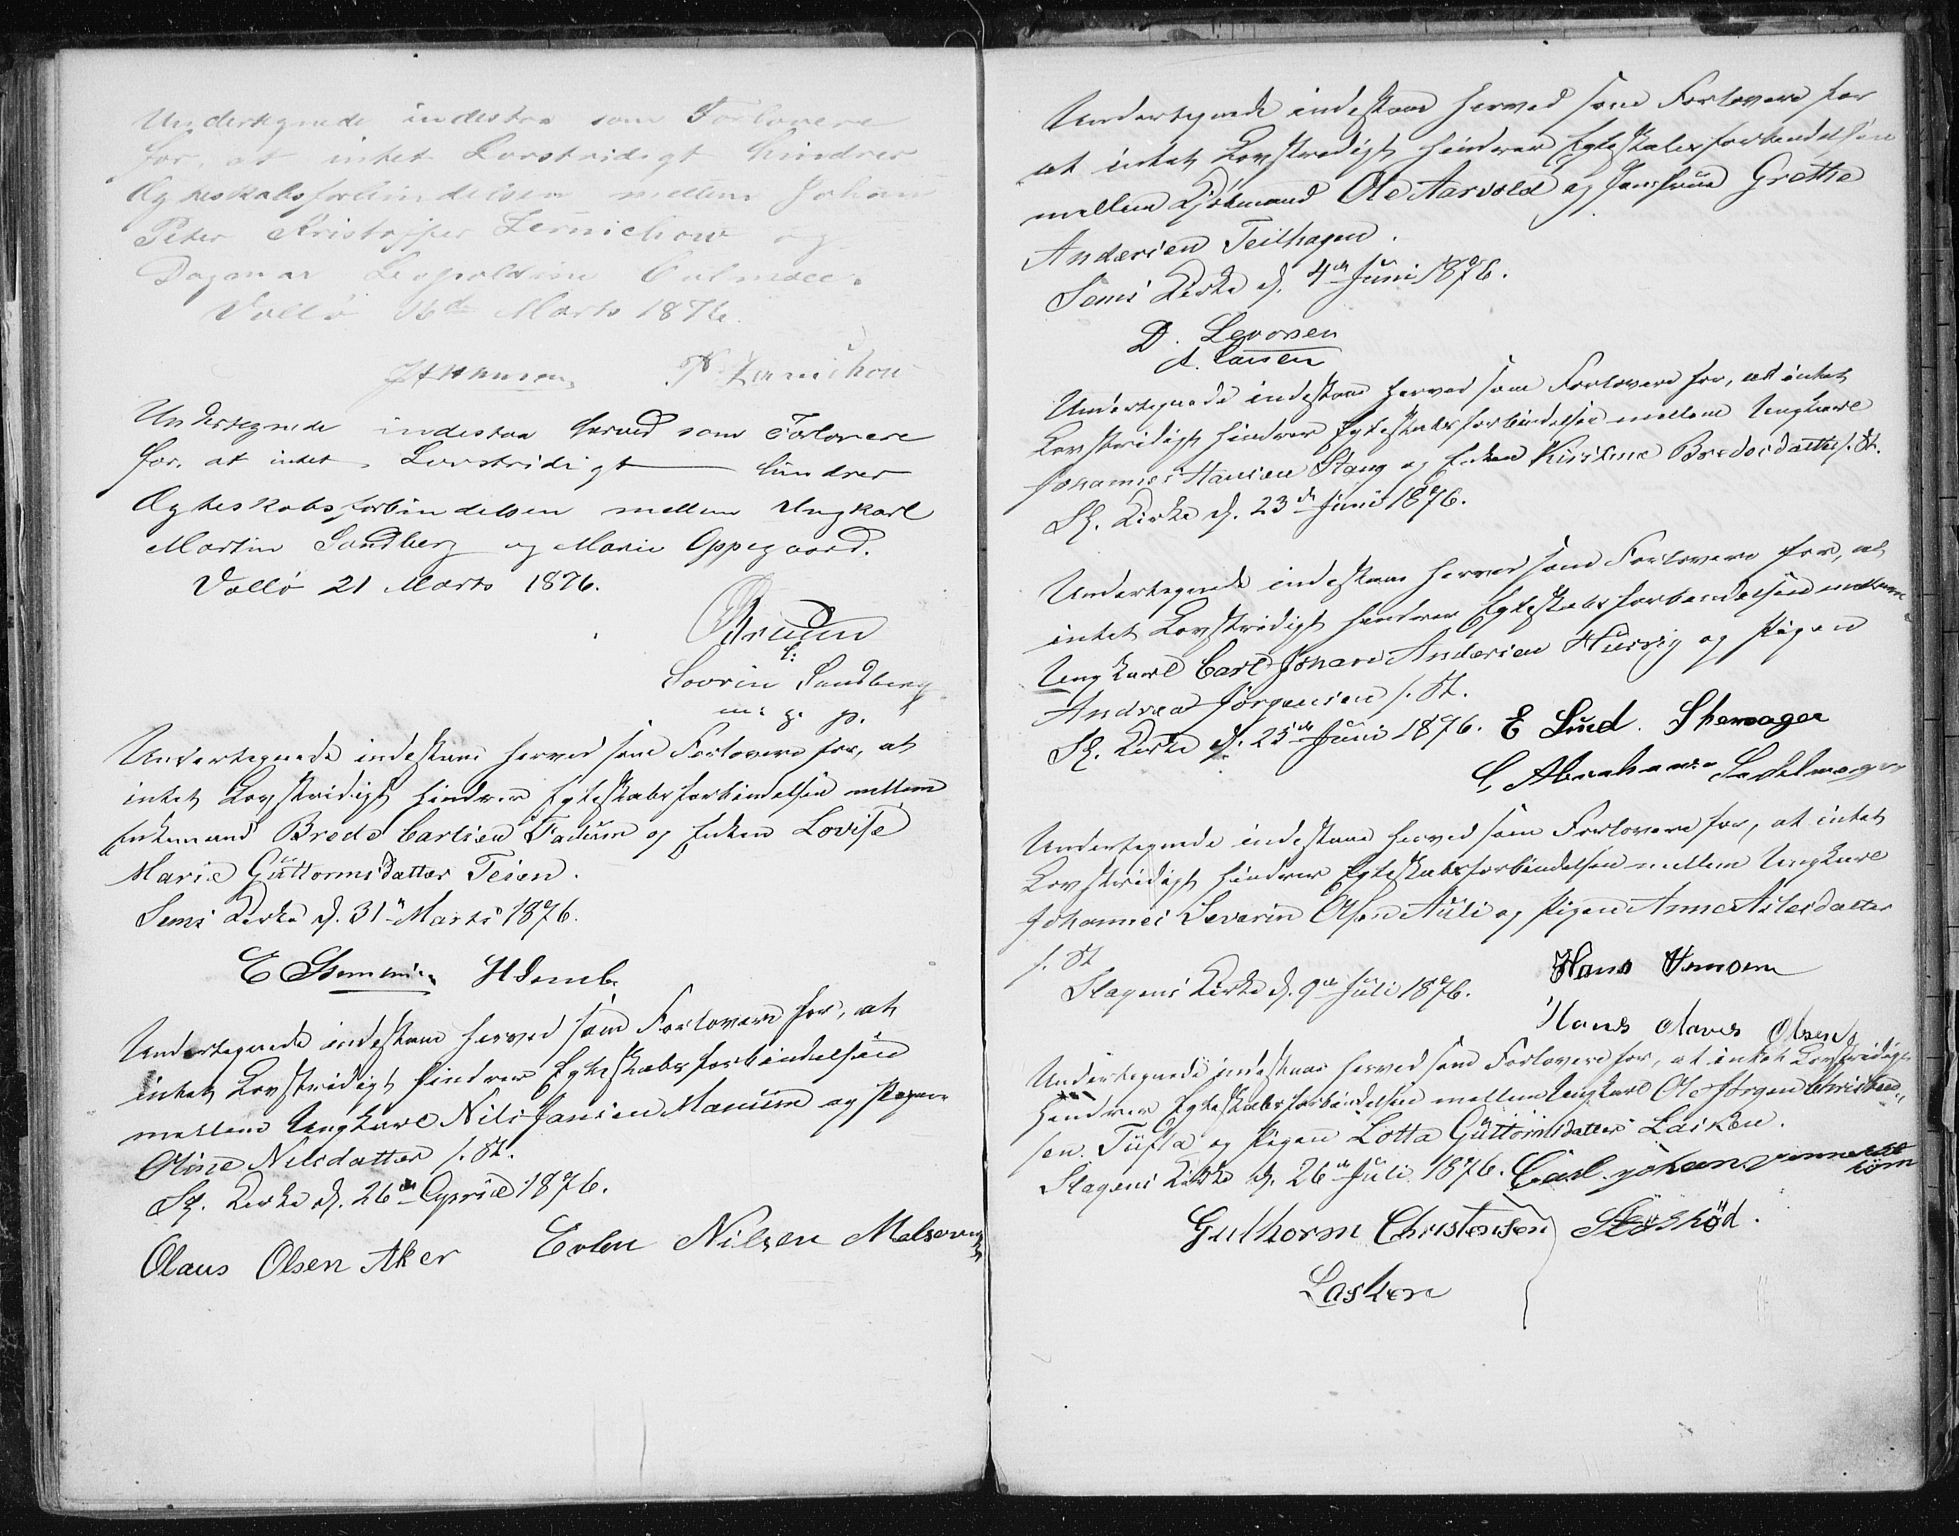 Undertegnede indestaa som Forlovere
for, at intet Lovstridigt hindrer
Ægteskabsforbindelsen mellem Johan
Peter Kristoffer Zernichow og
Dagmar Leopoldine
Vallø 16de Marts 1876.
Zernichow
Undertegnede indestaa herved som Forlovere
for, at intet Lovstridigt hindrer
Ægteskabsforbindelsen mellem Ungkarl
Martin Sandberg og Marie Oppegaard.
Vallø 21 Marts 1876.
Sandberg
m. g. p.
Undertegnede indestaae herved som Forlovere for, at
intet Lovstridigt hindrer Egteskabsforbindelsen mellem
Enkemand Brede Carlsen Fadum og Enken Lovise
Marie Guttormsdatter Teien.
Sems Kirke d. 31te Marts 1876.
Undertegnede indestaae herved som Forlovere for, at
intet Lovstridigt hindrer Egteskabsforbindelsen
mellem Ungkarl Nils Jansen Manum og Pigen
Oline Nilsdatter s. St.
Sl. Kirke d. 26de April 1876.
Olaus Olsen Aker Nilsen
Undertegnede indestaae herved som Forlovere for
at intet Lovstridigt hindrer Egteskabsforbindelsen
mellem Kjøbmand Ole Aarvold og Jomfrue Grethe
Andersen Teilhagen.
Sems Kirke d. 4de Juni 1876.
D. Levorsen
A. Larsen
Undertegnede indestaae herved som Forlovere for, at intet
Lovstridigt hindrer Egteskabsforbindelse mellem Ungkarl
Johannes Hansen Stang og Enken Kirstine Bredesdatter s. St.
Sl. Kirke d. 23de Juni 1876.
Undertegnede indestaae herved som Forlovere for, at
intet Lovstridigt hindrer Egteskabsforbindelsen mellem
Ungkarl Carl Johan Andersen Husvig og Pigen
Andrea Jørgensen s. St.
Sl. Kirke d. 25de Juni 1876. E Lud.
Undertegnede indestaae herved som Forlovere for, at intet
Lovstridigt hindrer Egteskabsforbindelsen mellem Ungkarl
Johannes Severin Olsen Auli og Pigen Anne Aslesdatter
s. St
Slagens Kirke d. 9de Juli 1876. Hans
Hans Olaves Olsen
Undertegnede indestaae herved som Forlovere for, at intet Lovstridigt
hindrer Egteskabsforbindelsen mellem Ungkarl Ole Jørgen Christen-
sen Tufta og Pigen Lotta Guttormsdatter Lasken.
Slagens Kirke d. 26de Juli 1876. Carl Johan
Guthorm Christensen
Lasken